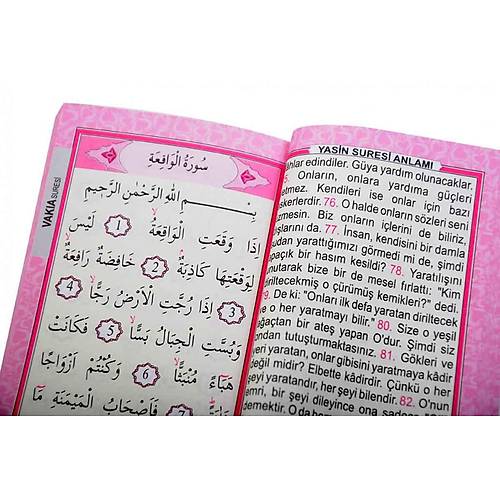 VAKIA SURESİ
سُورَةُ الْوَاقِعَةِ
بِسْمِ اللهِ الرَّحْمٰنِ الرَّحِيمِ
اِذَا وَقَعَتِ الْوَاقِعَةُ ۙ 1 لَيْسَ
لِوَقْعَتِهَا كَاذِبَةٌ ۘ 2 خَافِضَةٌ رَافِعَةٌ ۙ
3 اِذَا رُجَّتِ الْاَرْضُ رَجًّا ۙ 4
وَبُسَّتِ الْجِبَالُ بَسًّا ۙ 5 فَكَانَتْ
هَبَٓاءً مُنْبَثًّا ۙ 6 وَكُنْتُمْ اَزْوَاجًا
7 فَاَصْحَابُ الْمَيْمَنَةِ مَٓا
YASİN SURESİ ANLAMI
edindiler. Güya yardım olunacaklar.
Onların, onlara yardıma güçleri
etmez. Kendileri ise onlar için bazı
askerlerdir. 76. O halde onların sözleri seni
Biz onların içlerini de biliriz,
77. İnsan, kendisini bir damla
yarattığımızı görmedi mi de, şimdi
apaçık bir hasım kesildi? 78. Yaratılışını
unutarak bize bir de mesel fırlattı: "Kim
diriltecekmiş o çürümüş kemikleri?" dedi.
79. De ki: "Onları ilk defa yaratan diriltecek
ve o her yaratmayı bilir." 80. Size o yeşil
ağaçtan bir ateş yapan O'dur. Şimdi siz
ondan tutuşturmaktasınız. 81. Gökleri ve
yeri yaratan, onlar gibisini yaratmaya kâdir
değil midir? Elbette kâdirdir. Çünkü o her
şeyi yaratandır, her şeyi bilendir. 82. O'nun
emri, bir şeyi dileyince ona sadece
demektir.